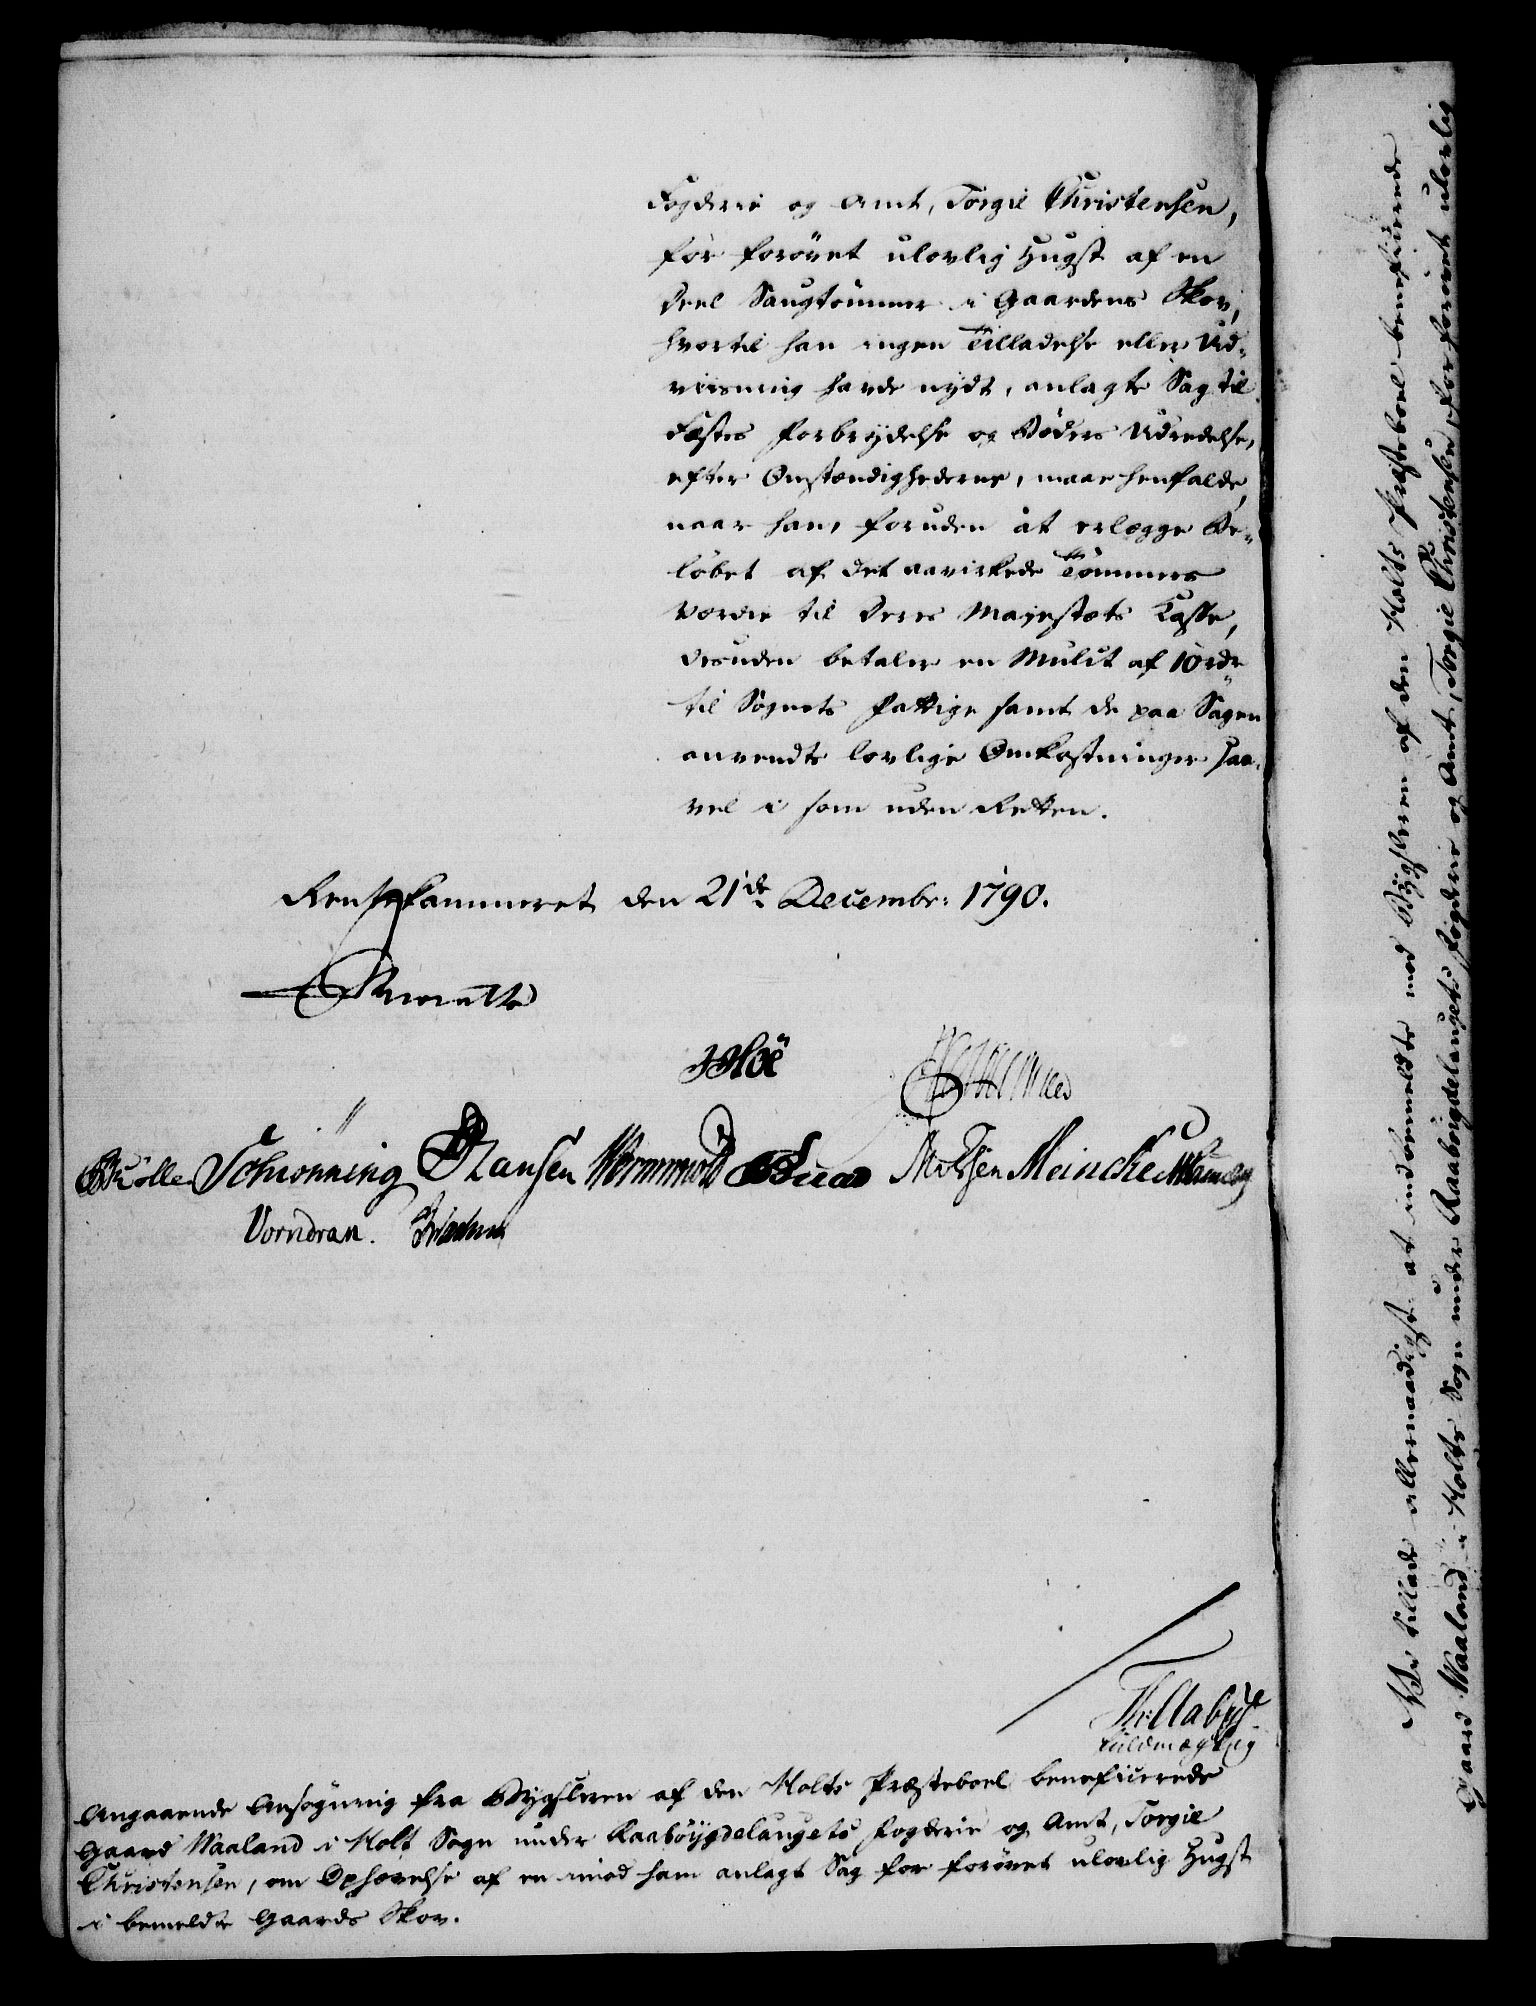 Fogderie og Amt, Torgie Christensen,
for forövet ulovlig Hugst af en
Deel Saugtömmer i Gaardens Skov,
hvortil han ingen Tilladelse eller Ud-
viisning havde nydt, anlagte Sag til
Fæstes Forbrydelse og Böders Udredelse,
efter Omstændighederne, maae henfalde,
naar han, foruden at erlægge Be-
löbet af det aavirkede Tömmers
Værdie til Deres Majestæts Casse,
desuden betaler en Mulct af 10 rdr
til Sognets Fattige samt de paa Sagen
anvendte lovlige Omkostninger saa-
vel i som uden Retten.
Rentekammeret den 21de Decembr: 1790.
Hoë
Schionning Hansen Wormskiold Meincke
Vorndran.
Fuldmægtig
Angaaende Ansögning fra Bygsleren af den Holts Præsteboel beneficerede
Gaard Waaland i Holt Sogn under Raaböygdelaugets Fogderie og Amt, Torgie
Christensen, om Ophævelse af en imod ham anlagt Sag for forövet ulovlig Hugst
i bemeldte Gaards Skov.
Vi tillade allernaadigst at indbemeldte mod Bÿgsleren af den Holts Præsteboel beneficerede
Gaard Waaland i Holts Sogn under Raaböygdelaugets Fogderie og Amt, Torgie Christensen, for forövet ulovlig